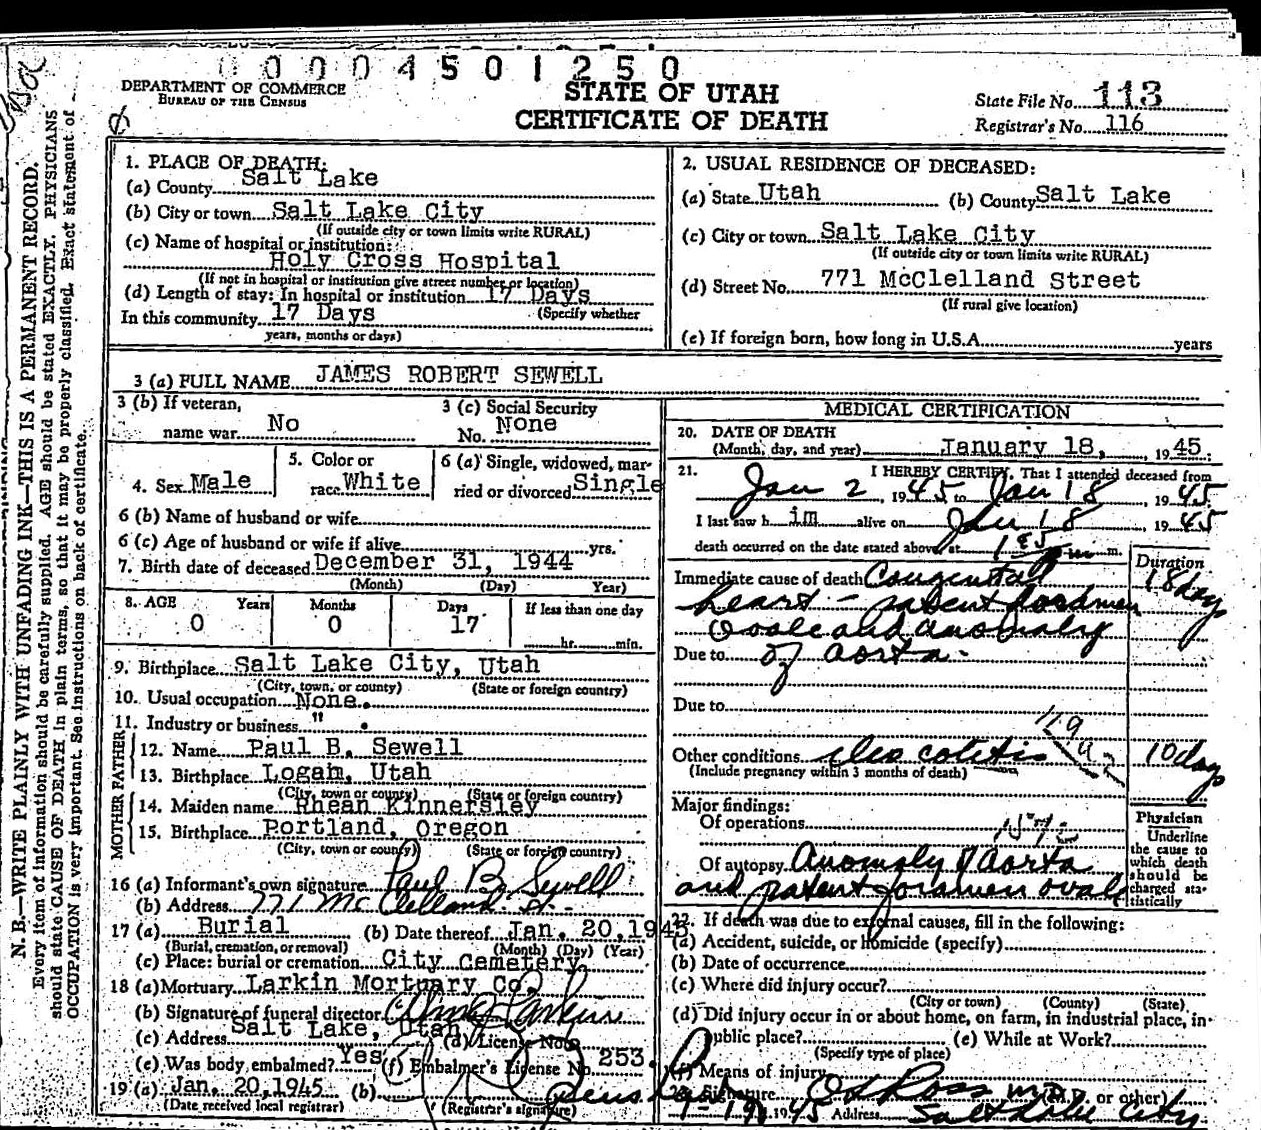 0004501250
DEPARTMENT OF COMMERCE
BUREAU OF THE CENSUS
STATE OF UTAH
CERTIFICATE OF DEATH
State File No. 113
Registrar's No. 116
N. B.—WRITE PLAINLY WITH UNFADING INK—THIS IS A PERMANENT RECORD.
Every item of information should be carefully supplied. AGE should be stated EXACTLY. PHYSICIANS
should state CAUSE OF DEATH in plain terms, so that it may be properly classified. Exact statement of
OCCUPATION is very important. See instructions on back of certificate.
1. PLACE OF DEATH:
(a) County Salt Lake
(b) City or town Salt Lake City
(If outside city or town limits write RURAL)
(c) Name of hospital or institution:
Holy Cross Hospital
(If not in hospital or institution give street number or location)
(d) Length of stay: In hospital or institution 17 Days
(Specify whether
In this community 17 Days
years, months or days)
2. USUAL RESIDENCE OF DECEASED:
(a) State Utah (b) County Salt Lake
(c) City or town Salt Lake City
(If outside city or town limits write RURAL)
(d) Street No. 771 McClelland Street
(If rural give location)
(e) If foreign born, how long in U.S.A. years
3 (a) FULL NAME JAMES ROBERT SEWELL
3 (b) If veteran,
name war No
3 (c) Social Security
No. None
4. Sex Male
5. Color or
race White
6 (a) Single, widowed, mar-
ried or divorced Single
6 (b) Name of husband or wife
6 (c) Age of husband or wife if alive yrs.
7. Birth date of deceased December 31, 1944
(Month) (Day) Year)
8. AGE Years Months Days If less than one day
0 0 17 hr. min.
9. Birthplace Salt Lake City, Utah
(City, town, or county) (State or foreign country)
10. Usual occupation None.
11. Industry or business " .
FATHER
12. Name Paul B. Sewell
13. Birthplace Logan, Utah
(City, town or county) (State or foreign country)
MOTHER
14. Maiden name Rhean Kinnersley
15. Birthplace Portland, Oregon
(City, town or county) (State or foreign country)
16 (a) Informant's own signature Paul B. Sewell
(b) Address 771 McClelland St.
17 (a) Burial (b) Date thereof Jan. 20, 1945
(Burial, cremation, or removal) (Month) (Day) (Year)
(c) Place: burial or cremation City Cemetery
18 (a) Mortuary Larkin Mortuary Co.
(b) Signature of funeral director
(c) Address Salt Lake, Utah (d) License No.
(e) Was body embalmed? Yes (f) Embalmer's License No. 253.
19 (a) Jan. 20, 1945 (b)
(Date received local registrar) (Registrar's signature)
MEDICAL CERTIFICATION
20. DATE OF DEATH
(Month, day, and year) January 18, 1945.
21. I HEREBY CERTIFY, That I attended deceased from
Jan 2, 1945 to Jan 18, 1945.
I last saw him alive on Jan 18, 1945
death occurred on the date stated above, at m.
Duration
Immediate cause of death Congenital 18 days
heart - patent foramen
ovale and anomaly
Due to of aorta.
Due to
Other conditions ileo colitis 10 days
(Include pregnancy within 3 months of death)
119
Major findings:
Of operations
157
Of autopsy Anomaly of Aorta
and patent foramen ovale
Physician
Underline
the cause to
which death
should be
charged sta-
tistically
22. If death was due to external causes, fill in the following:
(a) Accident, suicide, or homicide (specify)
(b) Date of occurrence
(c) Where did injury occur?
(City or town) (County) (State)
(d) Did injury occur in or about home, on farm, in industrial place, in
public place? (e) While at Work?
(Specify type of place)
(f) Means of injury
23. Signature Ross M.D. (M.D. or other)
1-19-1945 Address Salt Lake City